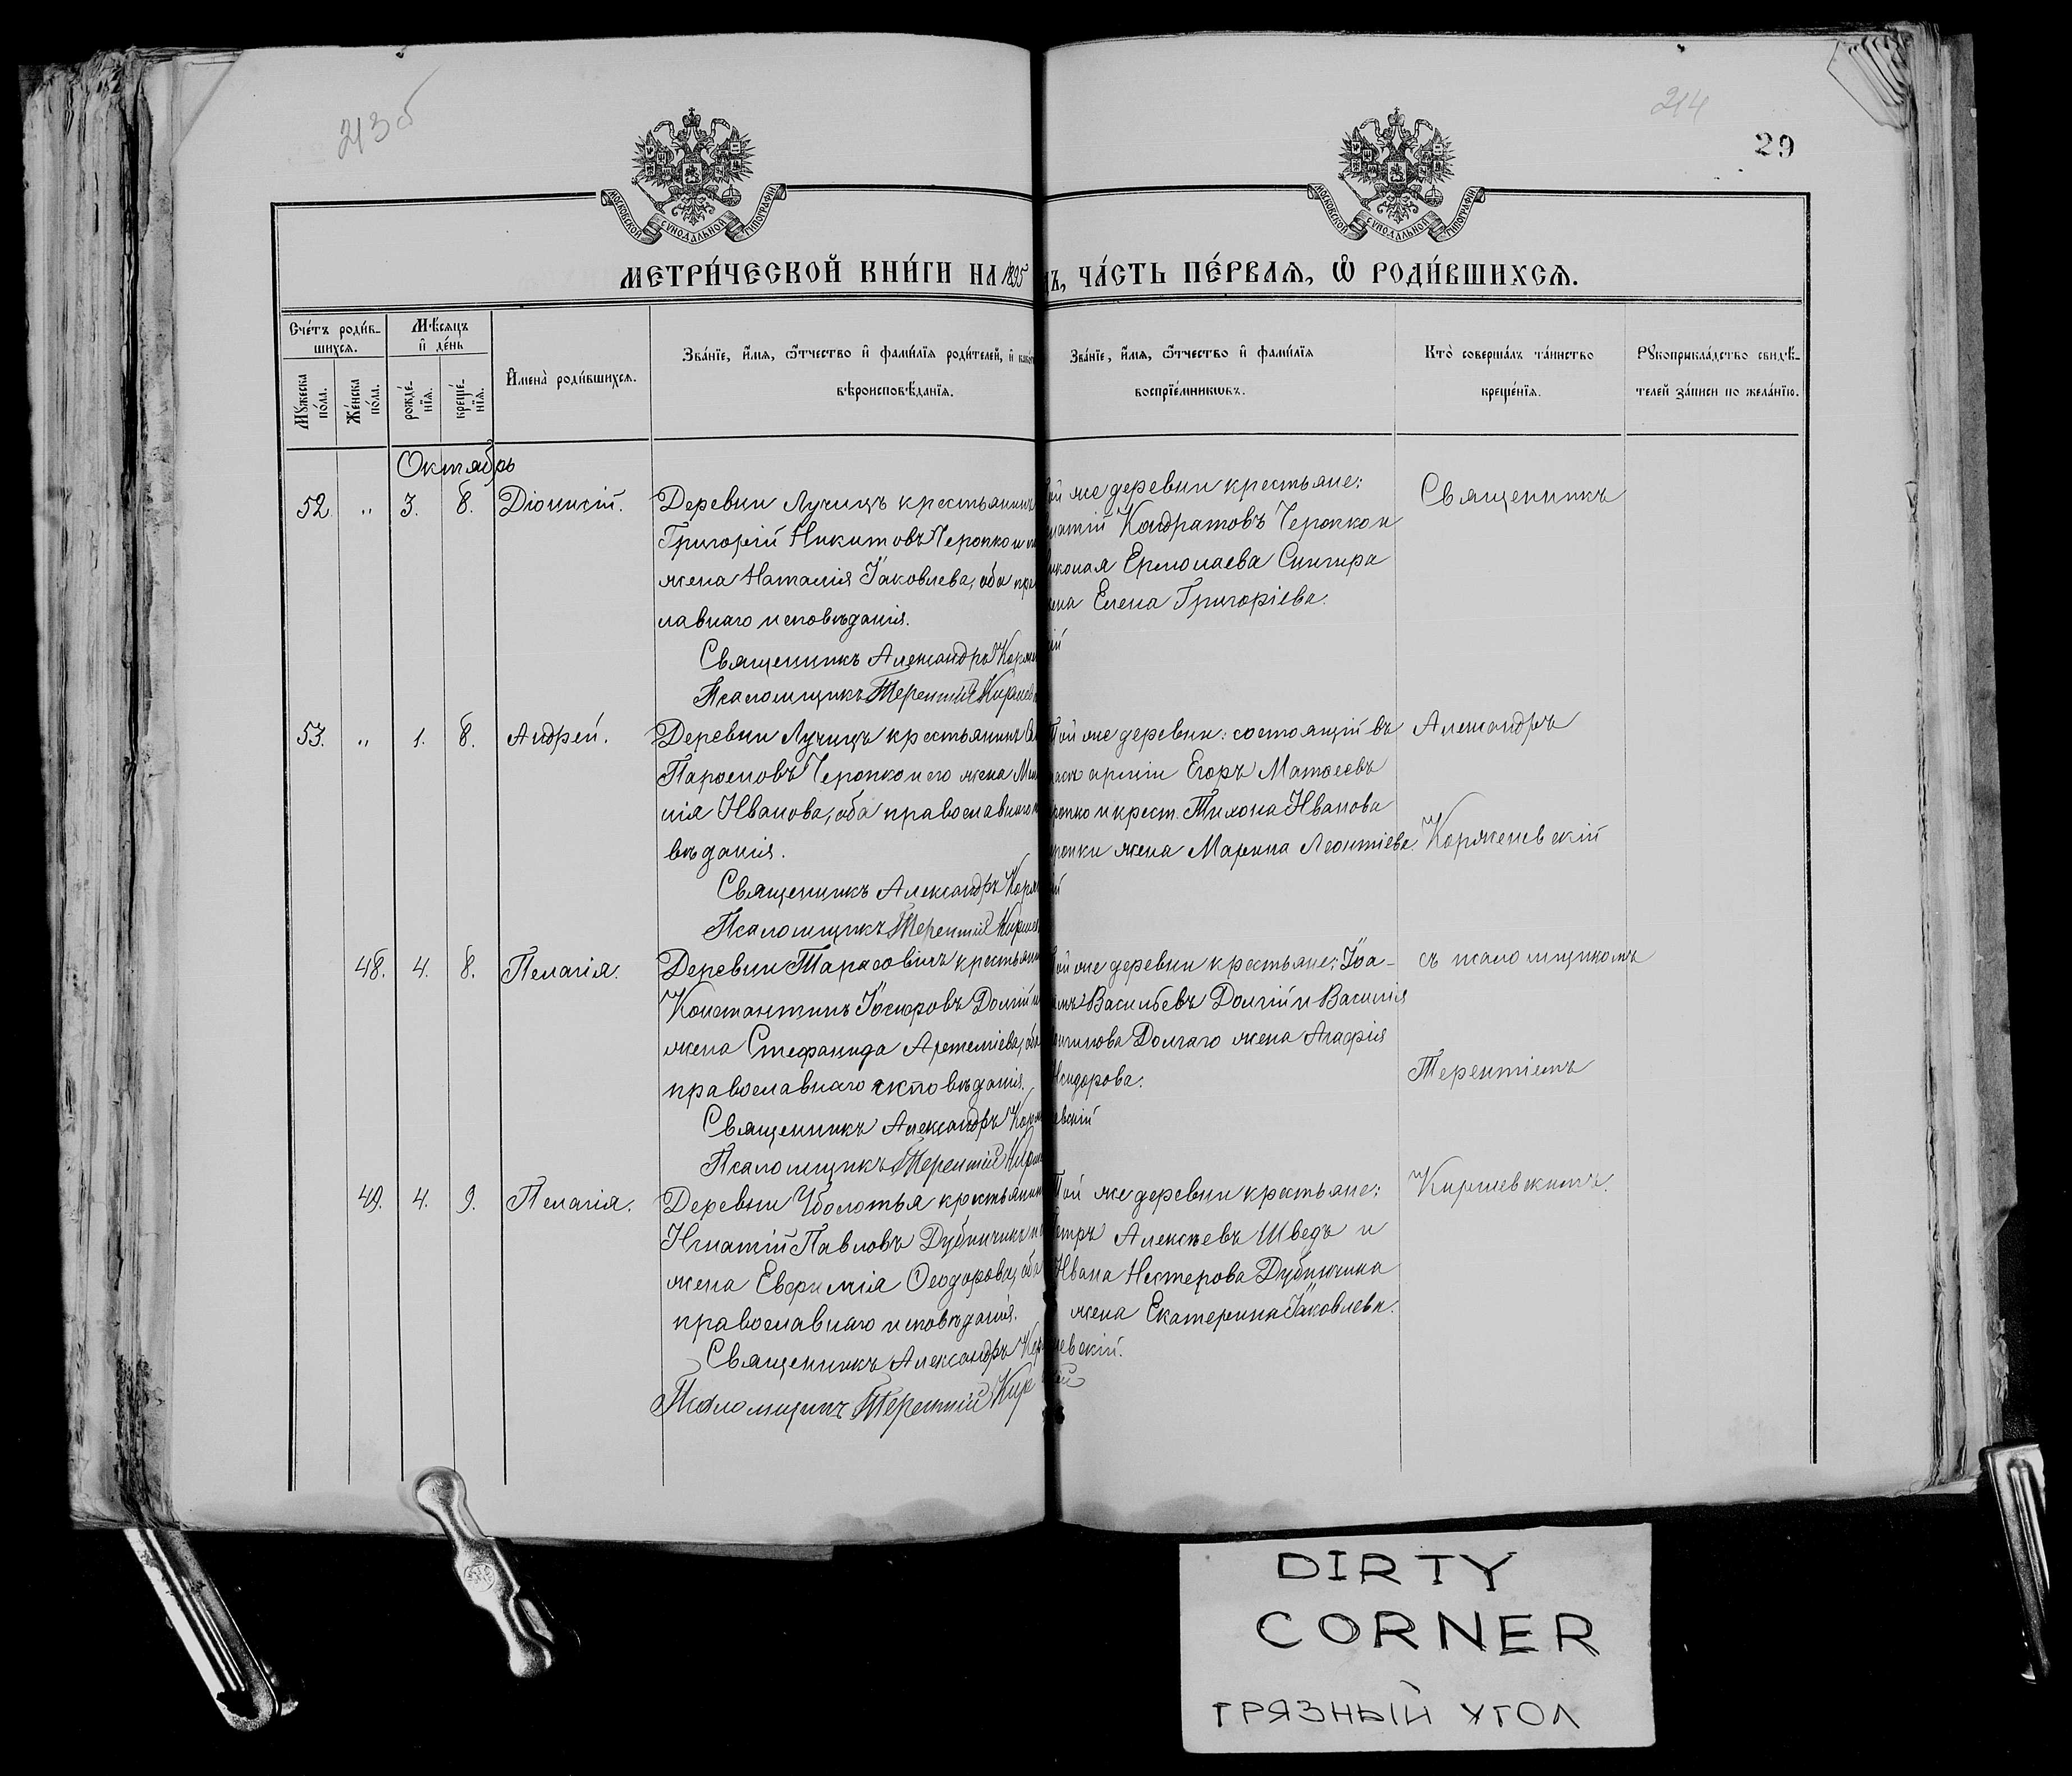 213б
214
29
МОСКОВСКОЙ СѴНОДАЛЬНОЙ ТИПОГРАФІИ
МОСКОВСКОЙ СѴНОДАЛЬНОЙ ТИПОГРАФІИ
МЕТРИ́ЧЕСКОЙ КНИ́ГИ НА 1895
ДЪ, ЧА́СТЬ ПЕ́РВАѦ, Ѡ҆ РОДИ́ВШИХСѦ.
Сче́тъ роди́в-
шихсѧ.
Мѣ́сѧцъ
и҆ де́нь
И҆мена̀ роди́вшихсѧ.
Зва́нїе, и҆́мѧ, ѻ҆́тчество и҆ фами́лїѧ роди́телей, и҆
вѣроисповѣ́данїѧ.
Зва́нїе, и҆́мѧ, ѻ҆́тчество и҆ фами́лїѧ
воспрїе́мникѡвъ.
Кто̀ соверша́лъ та́инство
креще́нїѧ.
Рꙋкоприкла́дство свидѣ́-
телей за́писи по жела́нїю.
Мꙋ́жеска
по́ла.
Же́нска
по́ла.
рожде́-
нїѧ.
креще́-
нїѧ.
Октябрь
52. „ 3. 8. Діонисій.
Деревни Лучицъ крестьянинъ
Григорій Никитовъ Черопко и
жена Наталія Іаковлева, оба пра
лавнаго исповѣданія.
Священникъ Александръ Корже
Псаломщикъ Терентій Киршев
ой же деревни крестьяне:
натій Кондратовъ Черопко и
иколая Ермолаева Снигира
ена Елена Григоріева.
ій
Священникъ
53. „ 1. 8. Андрей.
Деревни Лучицъ крестьянинъ
Парѳеновъ Черопко и его жена
нія Иванова, оба православнаго
вѣданія.
Священникъ Александръ Корж
Псаломщикъ Терентій Киршев
Той же деревни: состоящій въ
арміи Егоръ Матѳеевъ
ропко и крест. Тихона Иванова
ропки жена Марина Леонтіева.
й
Александръ
Корженевскій
48. 4. 8. Пелагія.
Деревни Тарасовичъ крестьянин
Константинъ Іосифовъ Долгій и
жена Стефанида Артеміева, оба
православнаго исповѣданія.
Священникъ Александръ Корж
Псаломщикъ Терентій Кирш
ой же деревни крестьяне: Іоа-
Васильевъ Долгій и Василія
Долгаго жена Агафія
Исидорова.
евскій
съ псаломщикомъ
Терентіемъ
49. 4. 9. Пелагія.
Деревни Уболотья крестьянин
Игнатій Павловъ Дубинчинъ и
жена Евфимія Ѳеодорова, оба
православнаго исповѣданія.
Священникъ Александръ Кор
Псаломщикъ Терентій Кир
Той же деревни крестьяне:
Петръ Алексѣевъ Шведъ и
Ивана Нестерова Дубинчина
жена Екатерина Іаковлева.
невскій.
Киршевскимъ.
DIRTY
CORNER
ГРЯЗНЫЙ УГОЛ